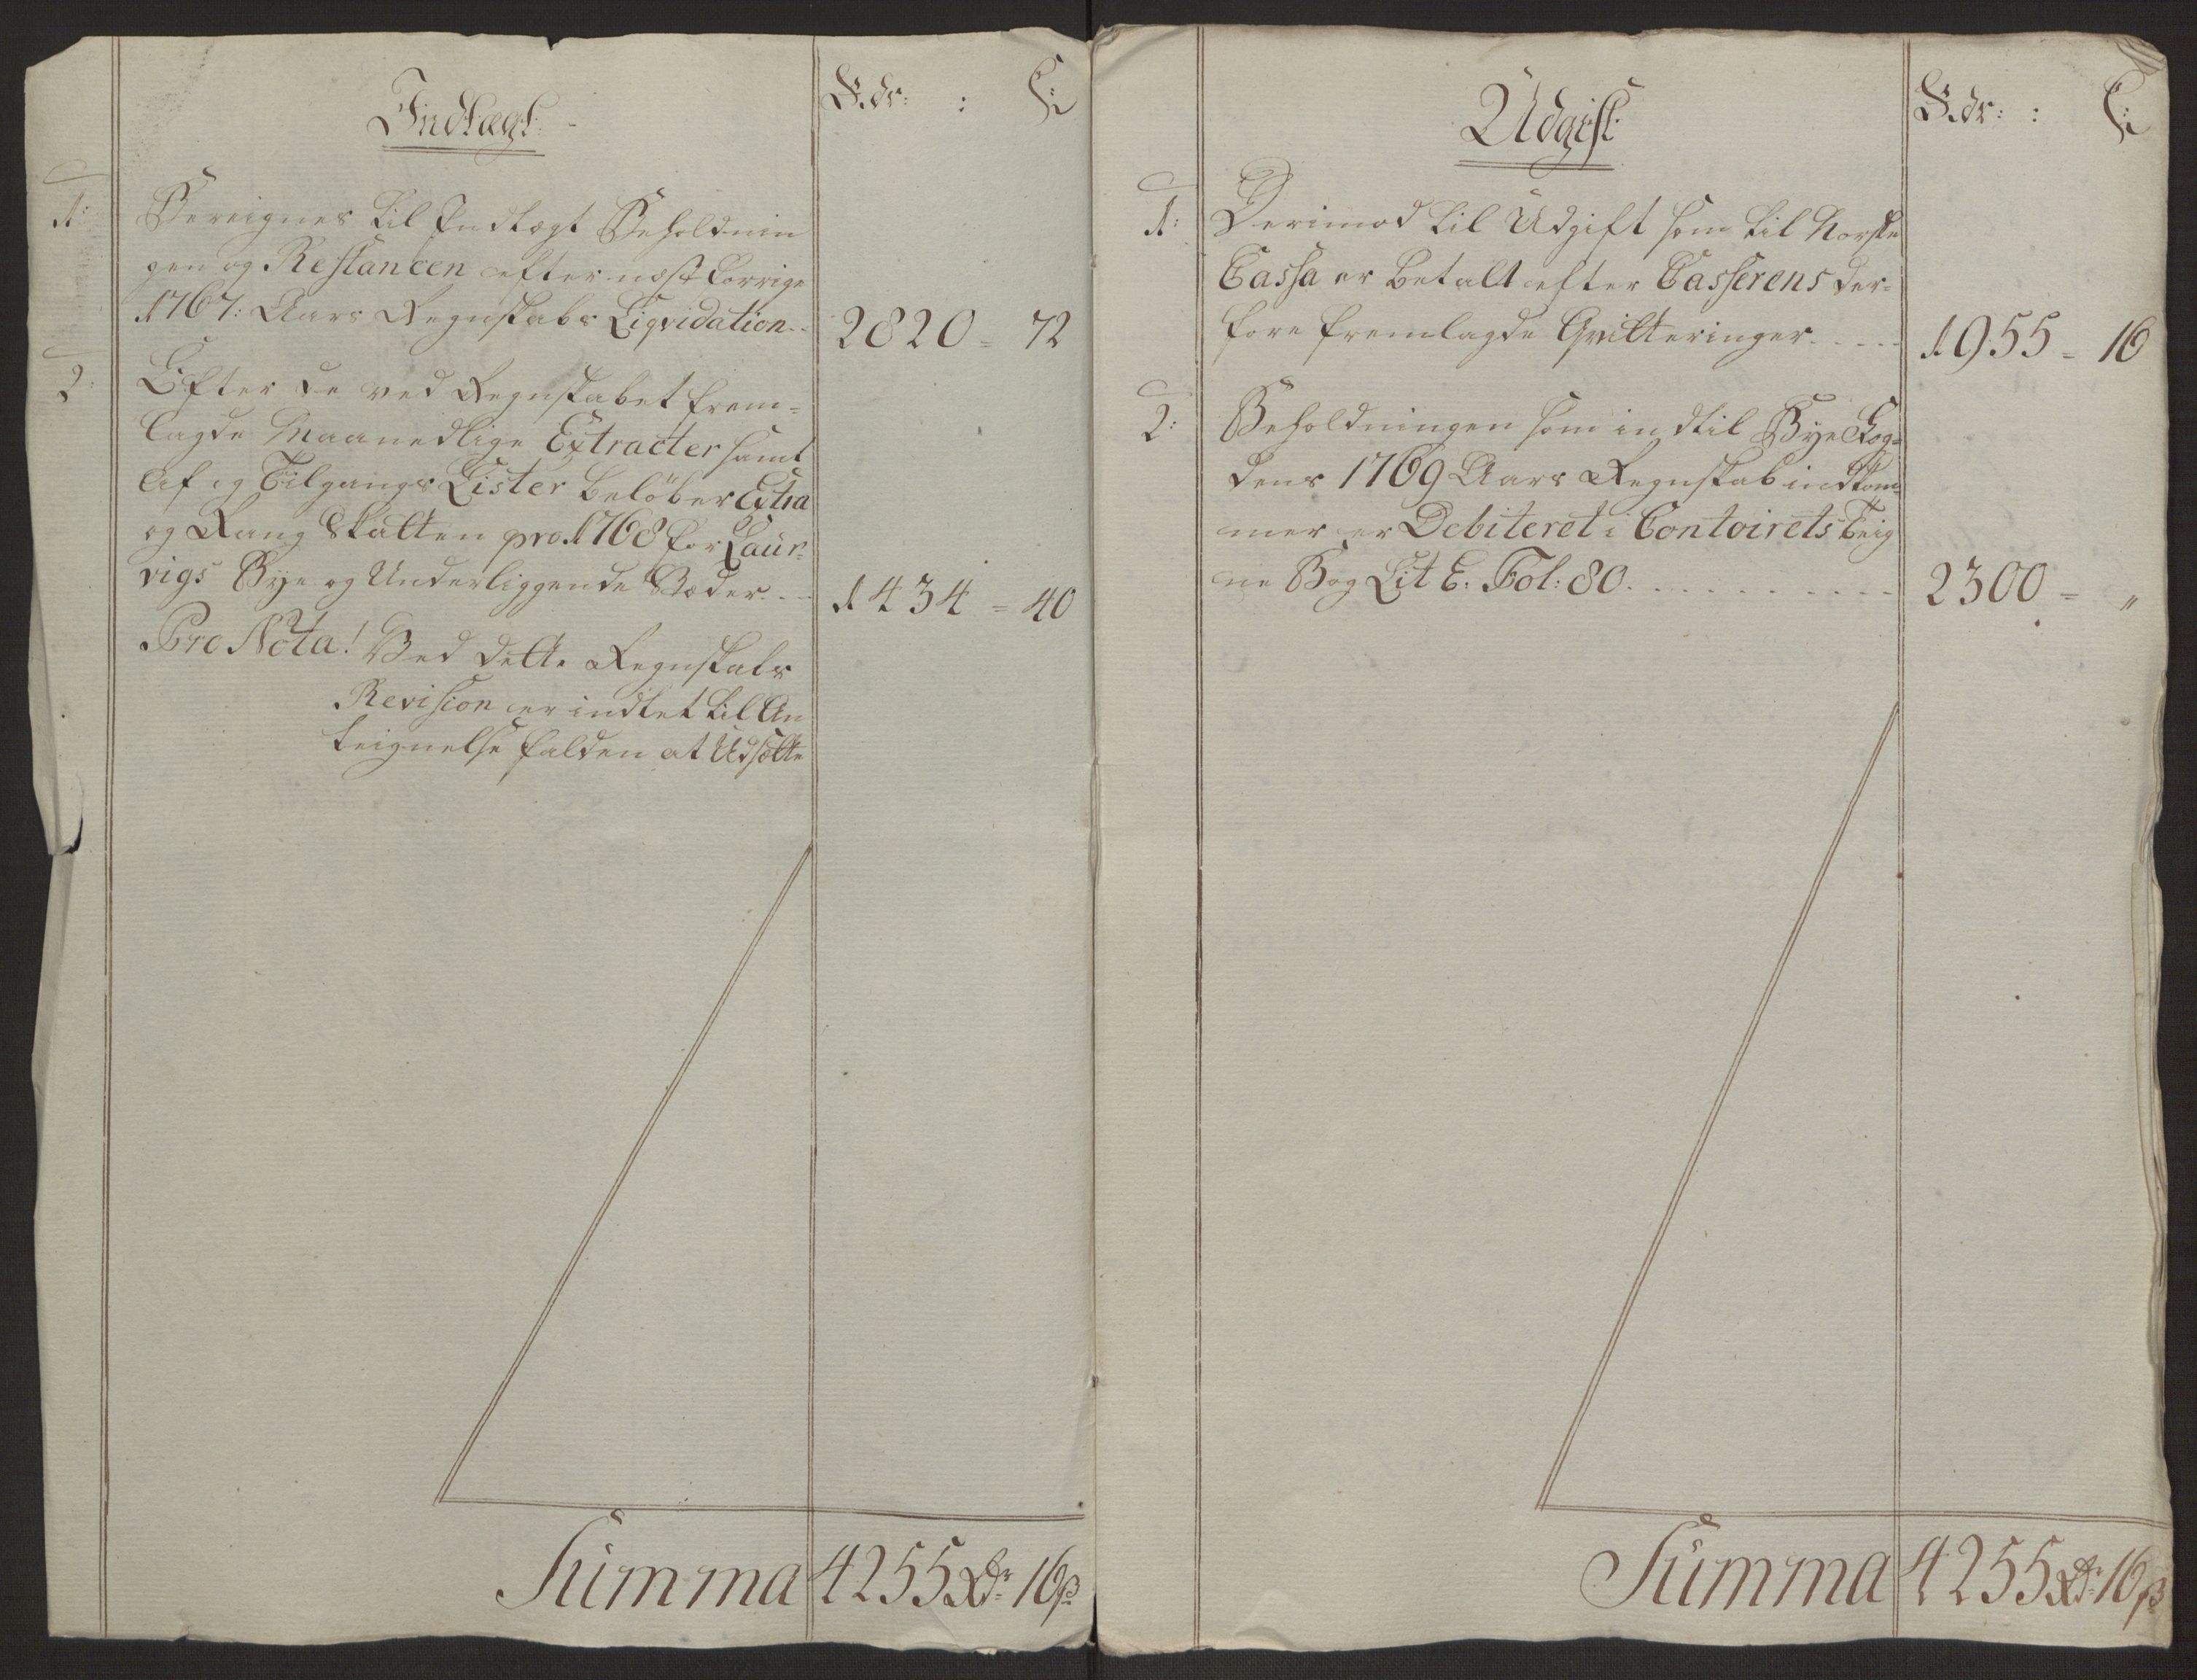 Indtægt.
R.dr: : ß:
1: Bereignes til Indtægt Beholdnin
gen og Restancen efter næst forrige
1767: Aars Regnskabs Liqvidation.. 2820 = 72
2: Efter de ved Regnskabet frem=
lagde Maanedlige Extracter samt
Af og Tilgangs Lister beløber Extra
og Rang Skatten pro 1768 for Laur=
vigs Bye og Underliggende Stæder... 1434 = 40
Pro Nota! Ved dette Regnskabs
Revision er indtet til An
teignelse falden at Udsætte
Summa 4255 Rdr 16 ß
Udgift
R.dr: : ß:
1: Derimod til Udgift som til Norske
Cassa er betalt efter Casserens der=
fore fremlagde Qvitteringer..... 1955 = 16
2: Beholdningen som indtil Bye Fog=
dens 1769 Aars Regnskab indkom=
mer er Debiteret i Contoirets Teig
ne Bog Lit E. Fol: 80. . . . . . . . . . 2300 = "
Summa 4255 Rdr 16 ß